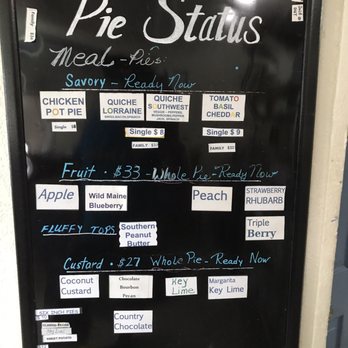 Pie Status
Meal - Pies:
Savory - Ready Now
CHICKEN POT PIE
QUICHE LORRAINE
QUICHE SOUTHWEST
TOMATO BASIL CHEDDAR
Single
Single $8
Single $9
FAMILY
FAMILY
Fruit • $33 - Whole Pie - Ready Now
Apple
Wild Maine Blueberry
Peach
STRAWBERRY RHUBARB
FLUFFY TOPS
Southern Peanut Butter
Triple Berry
Custard • $27 Whole Pie - Ready Now
Coconut Custard
Chocolate Bourbon Pecan
Key Lime
Margarita Key Lime
SIX INCH PIES
Country Chocolate
SWEET POTATO